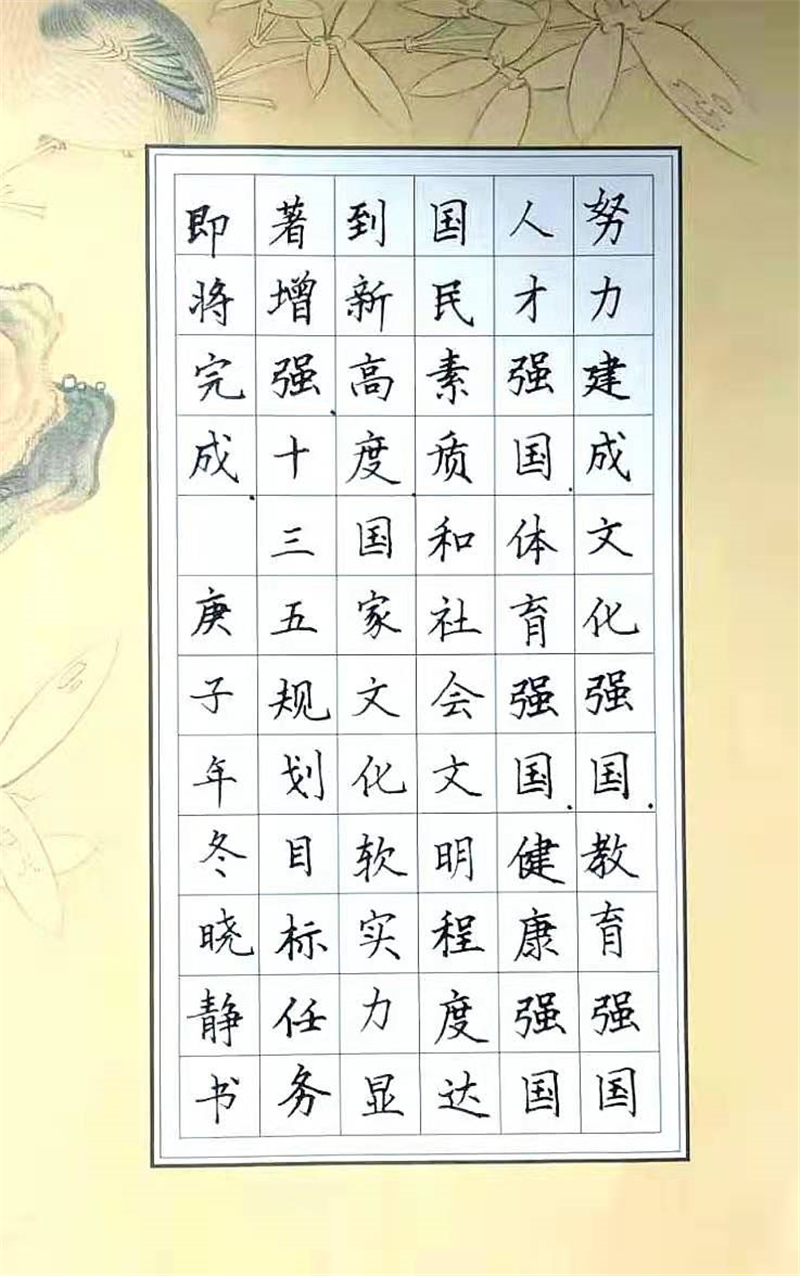 努力建成文化强国.教育强国
人才强国.体育强国.健康强国
国民素质和社会文明程度达
到新高度.国家文化软实力显
著增强.十三五规划目标任务
即将完成.
庚子年冬晓静书